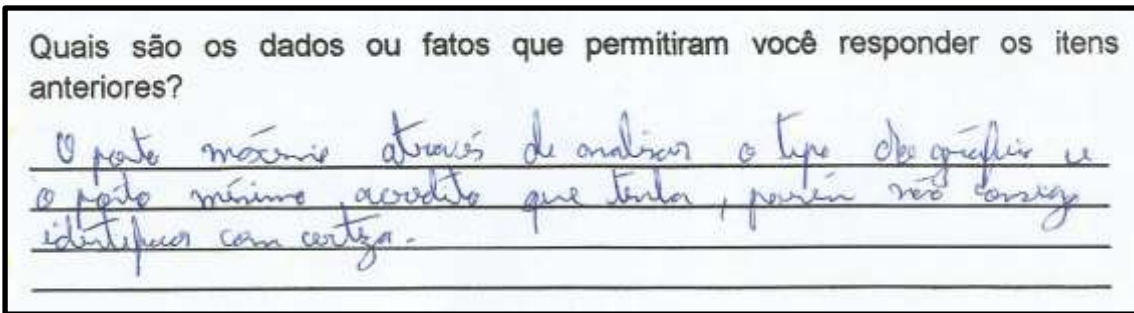 Quais são os dados ou fatos que permitiram você responder os itens
anteriores?
O ponto máximo através de analisar o tipo do gráfico e
o ponto mínimo acredito que tenha, porém não consigo
identificar com certeza.